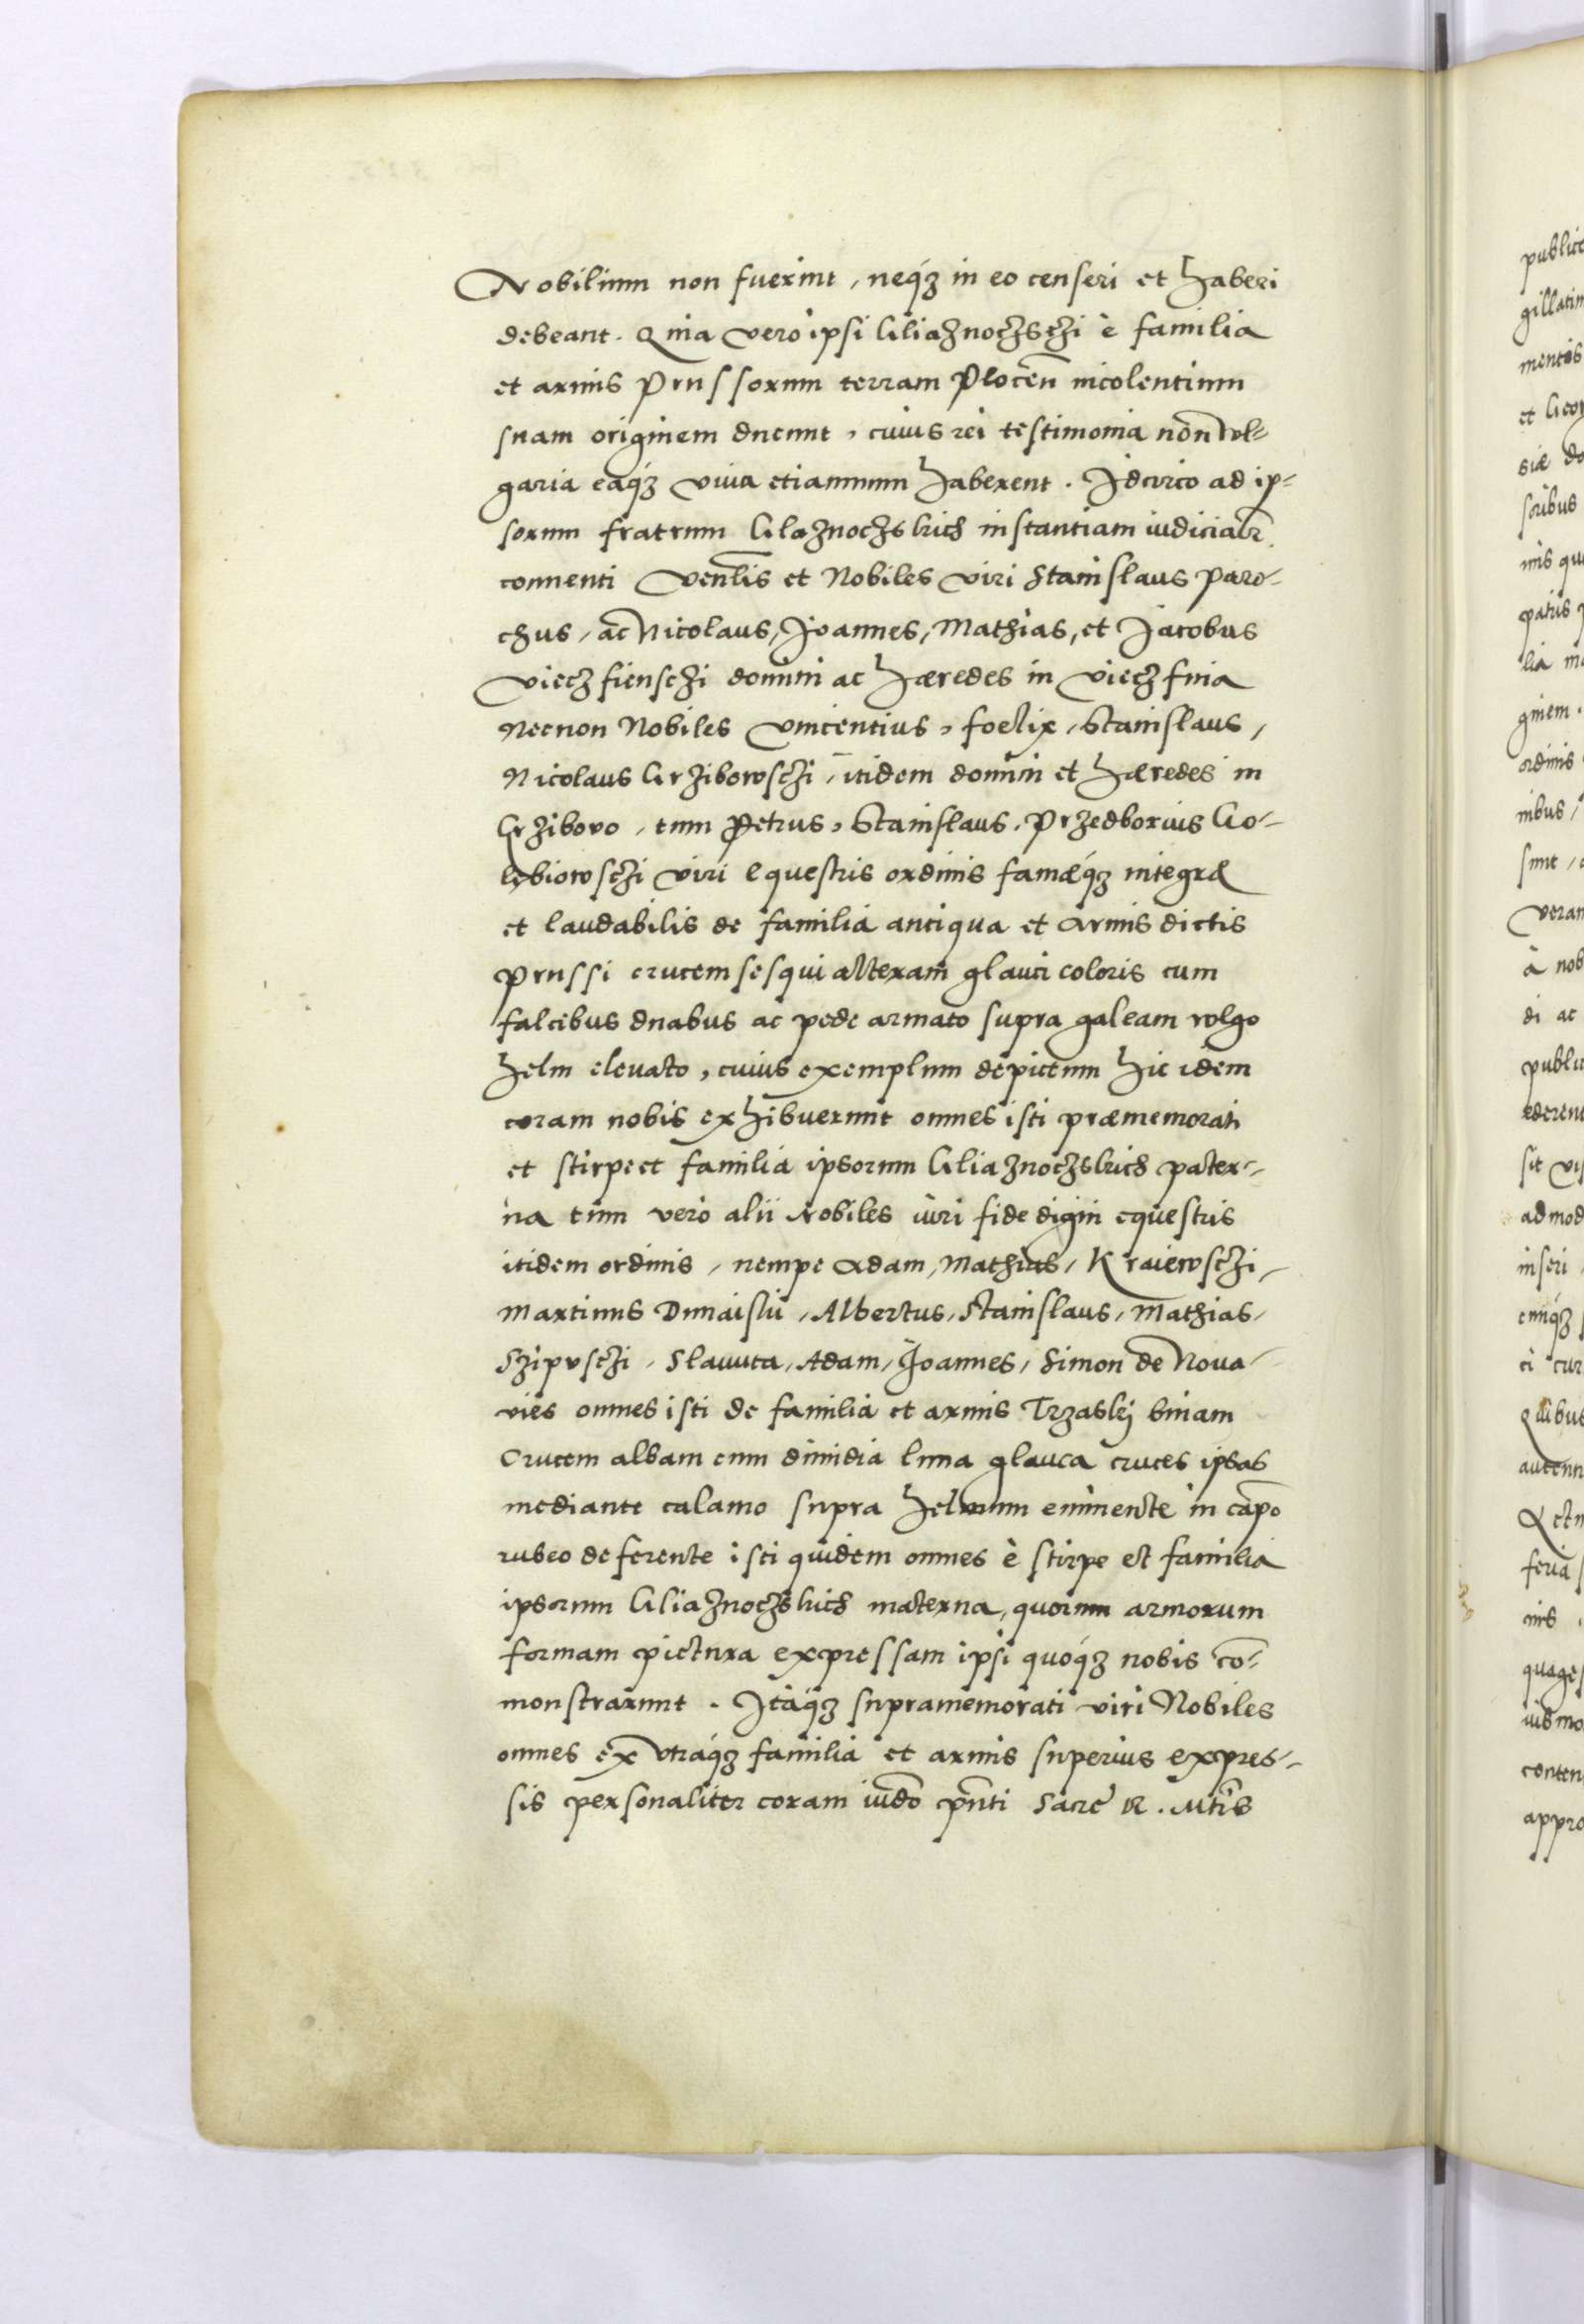 Nobilium non fuerint, neq́ꝫ in eo censeri et haberi
debeant. Quia vero ipsi Gliaznoczsczi è familia
et armis Prussorum terram Plocen̄ incolentium
suam originem ducunt, cuius rei testimonia non vol⸗
garia eaq́ꝫ viua etiamnum haberent. Idcirco ad ip⸗
sorum fratrum Glaznoczskich instantiam iudicialr̄
conuenti Ven̄lis et Nobiles viri Stanislaus paro⸗
chus, ac Nicolaus, Joannes, Mathias, et Jacobus
Vieczfienschi domini ac hæredes in Vieczfnia
Necnon Nobiles Vincentius, foelix, Stanislaus,
Nicolaus Grzibowsczi, itidem domini et hæredes in
Grzibovo, tum Petrus, Stanislaus, Przedborius Go⸗
lębiowsczi viri equestris ordinis famæq́ꝫ integræ
et laudabilis de familia antiqua et Armis dictis
Prussi crucem sesqui alteram glauci coloris cum
falcibus duabus ac pede armato supra galeam volgo
helm eleuato, cuius exemplum depictum hic idem
coram nobis exhibuerunt omnes isti præmemorati
et stirpe et familia ipsorum Gliaznoczskich pater⸗
na tum vero alii Nobiles viri fide digni equestris
itidem ordinis, nempe Adam, Mathias, Kraiewsczi,
Martinus Dunaiski, Albertus, Stanislaus, Mathias,
Szipvsczi, Slauuta, Adam, Joannes, Simon de Noua
vies omnes isti de familia et armis Trzaskj binam
Crucem albam cum dimidia luna glauca cruces ipsas
mediante calamo supra helmum eminente in cāpo
rubeo deferente isti quidem omnes è stirpe et familia
ipsorum Gliaznoczskich materna, quorum armorum
formam pictura expressam ipsi quoq́ꝫ nobis cō⸗
monstrarunt. Itaq́ꝫ supramemorati viri Nobiles
omnes ex vtraq́ꝫ familia et armis superius expres⸗
sis personaliter coram iudō pn̄ti Sacrę R. Mt̄is